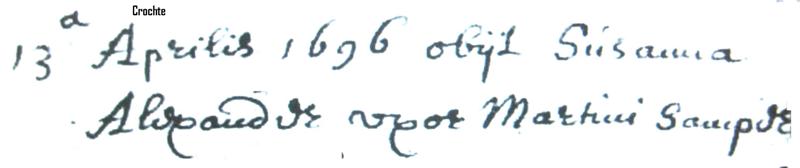 Crochte
13a Aprilis 1696 obijt Susanna
Alexander uxor Martini Samper